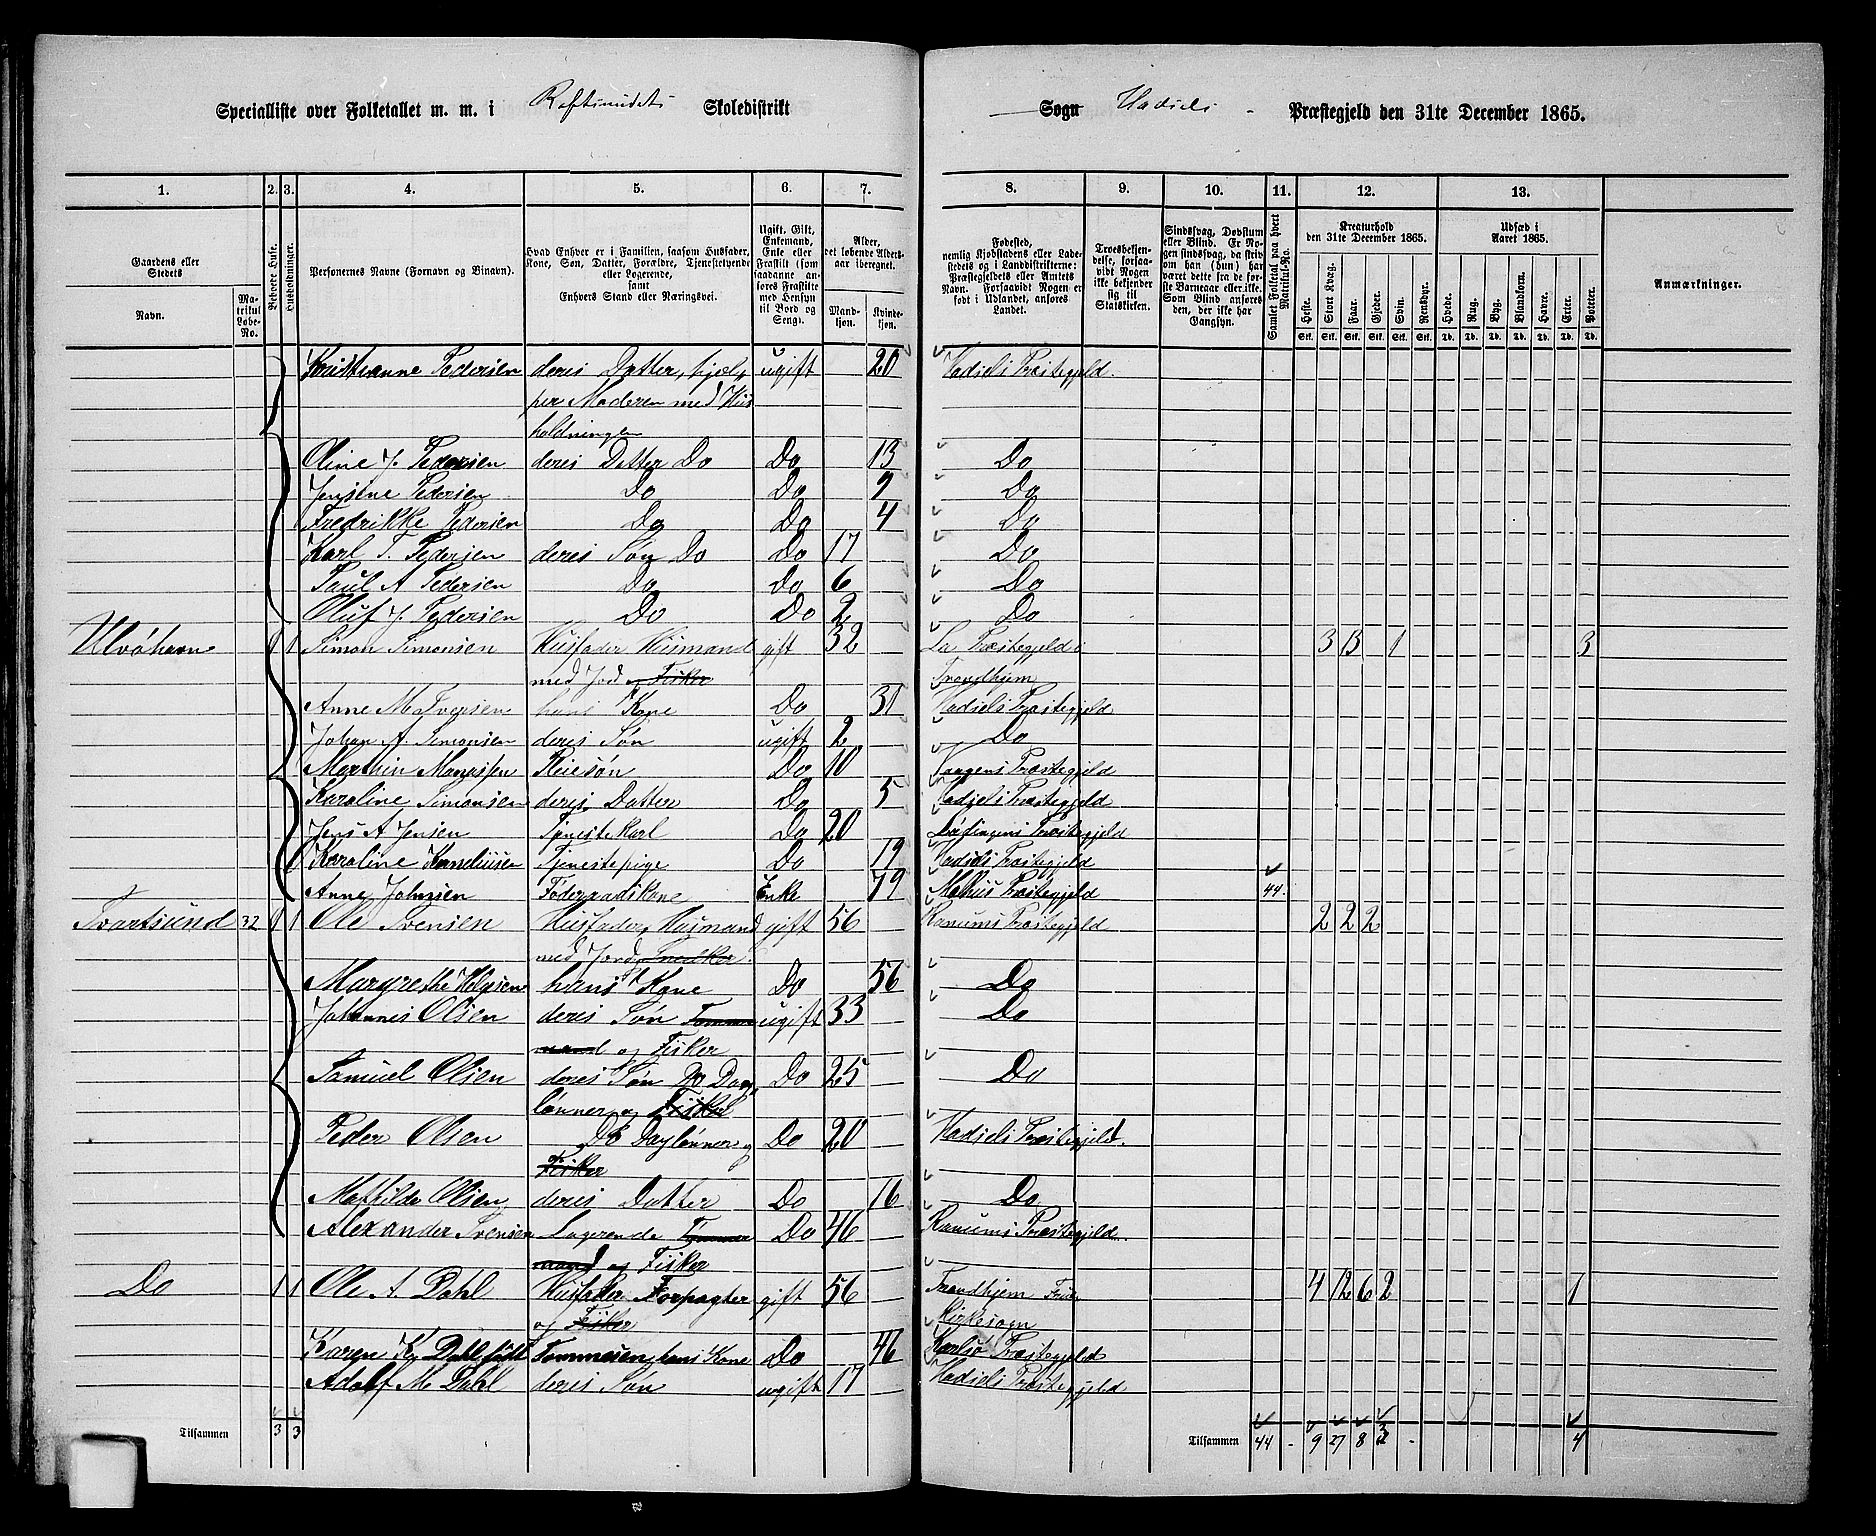 Specialliste over Folketallet m. m. i Raftsundets Skoledistrikt
Sogn Hadsels Præstegjeld den 31te December 1865.
1. 2. 3. 4. 5. 6. 7. 8. 9. 10. 11. 12. 13.
Gaardens eller Stedets
Navn.
Matrikul Løbe-No.
Beboede Huse.
Husholdninger.
Personernes Navne (Fornavn og Binavn).
Hvad Enhver er i Familien, saasom Husfader, Kone, Søn, Datter, Forældre, Tjenestetyende eller Logerende, samt Enhvers Stand eller Næringsvei.
Ugift, Gift, Enkemand, Enke eller Fraskilt (som saadanne anføres Fraskilte med Hensyn til Bord og Seng).
Alder, det løbende Alders-aar iberegnet.
Mandkjøn. Kvindekjøn.
Fødested, nemlig Kjøbstadens eller Ladestedets og i Landdistrikterne: Præstegjeldets eller Amtets Navn. Forsaavidt Nogen er født i Udlandet, anføres Landet.
Troesbekjendelse, forsaavidt Nogen ikke bekjender sig til Statskirken.
Sindssvag, Døvstum eller Blind. Er Nogen sindssvag, da skriv om han (hun) har været dette fra de første Barneaar eller ikke. Som Blind anføres den, der ikke har Gangsyn.
Samlet Folketal paa hvert Matrikul-No.
Kreaturhold den 31te December 1865.
Heste. Stort Kvæg. Faar. Gjeder. Svin. Rensdyr.
Udsæd i Aaret 1865.
Hvede. Rug. Byg. Blandkorn. Havre. Erter. Poteter.
Anmærkninger.
Kristianne Pedersen deres Datter, hjæl- ugift 20 Hadsels Præstegjeld.
per Moderen med Hus
holdningen
Oline J. Pedersen deres Datter Do Do 13 Do
Jensine Pedersen Do Do 9 Do
Fredrikke Pedersen Do Do 4 Do
Karl T. Pedersen deres Søn Do Do 17 Do
Paul A Pedersen Do Do 6 Do
Oluf J. Pedersen Do Do 2 Do
Ulvøhavn 1 1 Simon Simonsen Husfader Husmand gift 32 Præstegjeld i 3 13 1 3
med Jord og Fisker Trondhjem
Anne M Iversen hans Kone Do 31 Hadsels Præstegjeld
Johan A. Simonsen deres Søn ugift 2 Do
Marthin Pleiesøn Do 10 Vaagens Præstegjeld
Karoline Simonsen deres Datter Do 5 Hadsels Præstegjeld
Jens A Jensen Tjenestekarl Do 20 Lødingens Præstegjeld
Karoline Korneliussen Tjenestepige Do 19 Hadsels Præstegjeld
Anne Johnsen Føderaadskone Enke 79 Melhus Præstegjeld 44.
Svartsund 32 1 1 Ole Svensen Husfader Husmand gift 56 Ranums Præstegjeld 2 2 2
med Jord, Snedker
Margrethe Helgesen hans Kone Do 56 Do
Johannes Olsen deres Søn Tømmer ugift 33 Do
mand og Fisker
Samuel Olsen deres Søn Do Dag Do 25 Do
lønner og Fisker
Peder Olsen Do Daglønner og Do 20 Hadsels Præstegjeld.
Fisker
Mathilde Olsen deres Datter Do 16 Do
Alexander Svensen Logerende Tømmer Do 46 Ranums Præstegjeld.
mand og Fisker
Do 1 1 Ole A. Dahl Husfader Forpagter gift 56 Trondhjem Frue 4 12 6 2 1
og Fisker Kirkesogn
Karen K. Dahl født Tommesen, hans Kone Do 46 Karlsø Præstegjeld
Adolf M. Dahl deres Søn ugift 17 Hadsels Præstegjeld
Tilsammen 3 3 Tilsammen 44 - 9 27 8 3 - 4